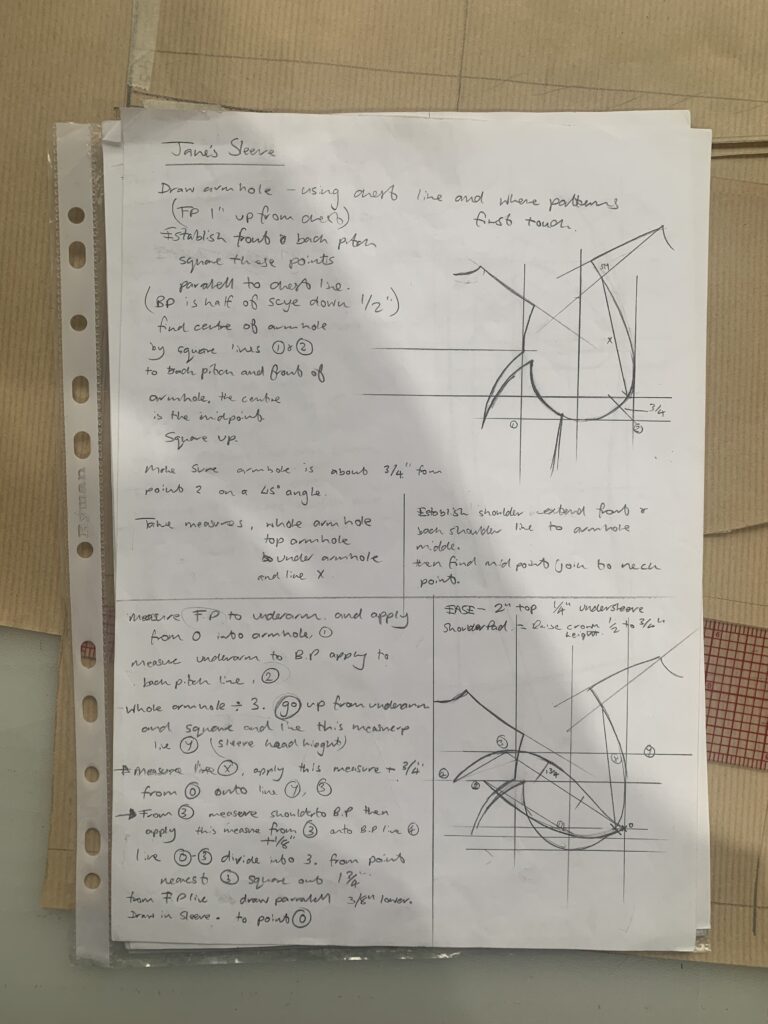 Jane's Sleeve
Draw armhole - using chest line and where patterns
first touch.
(FP 1" up from chest)
Establish front & back pitch
square these points
paralell to chest line.
(BP is half of scye down 1/2")
find centre of armhole
by square lines ① & ②
to back pitch and front of
armhole, the centre
is the midpoint
Square up.
Make sure armhole is about 3/4" from
point 2 on a 45° angle.
X
3/4
①
②
Take measures, whole armhole
top armhole
under armhole
and line X
Establish shoulder extend front &
back shoulder line to armhole
middle.
then find mid point (join to neck
point.
measure F.P to underarm and apply
from 0 into armhole. ①
measure underarm to B.P apply to
back pitch line. ②
Whole armhole ÷ 3. go up from underarm
and square and line this measure
line Ⓨ (sleeve head hieght)
Measure line Ⓧ, apply this measure + 3/4"
from ⓪ onto line Ⓨ, ③
From ③ measure shoulder to B.P then
apply this measure from ③ onto B.P line ④
+1/8"
line ⓪-③ divide into 3. from point
nearest ③ square out 1 3/4".
from F.P line draw parralell 3/8" lower.
Draw in sleeve. to point ⓪
EASE - 2" top 1/4" undersleeve
Shoulder Pad. = Raise crown 1/2 to 3/4"
height.
③
Ⓨ
④
0
Ryman